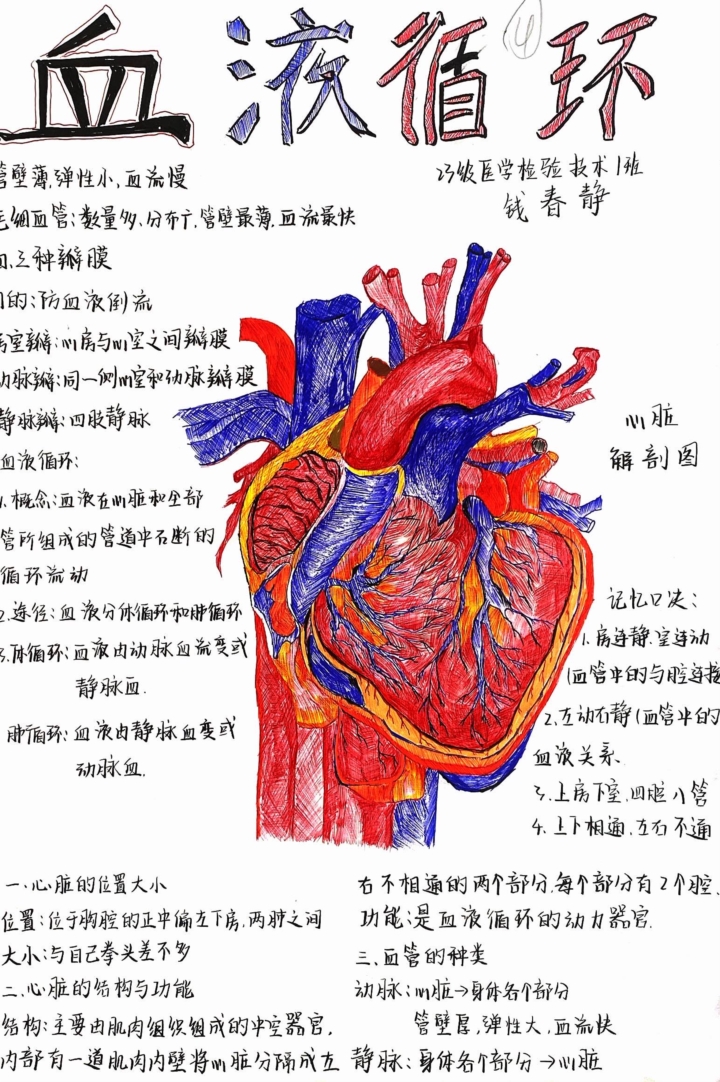 血液循环
④
23级医学检验技术1班
钱春静
管壁薄,弹性小,血流慢
毛细血管:数量多、分布广,管壁最薄,血流最快
四、三种瓣膜
目的:防血液倒流
房室瓣:心房与心室之间瓣膜
动脉瓣:同一侧心室和动脉瓣膜
静脉瓣:四肢静脉
血液循环:
1.概念:血液在心脏和全部
管所组成的管道中不断的
循环流动
2.途径:血液分体循环和肺循环
3.体循环:血液由动脉血流变或
静脉血.
肺循环:血液由静脉血变或
动脉血.
心脏
解剖图
记忆口决:
1.房连静.室连动
(血管中的与腔连接
2.左动右静(血管中的
血液关系.
3.上房下室.四腔八管
4.上下相通.左右不通
一.心脏的位置大小
位置:位于胸腔的正中偏左下房,两肺之间
大小:与自己拳头差不多
二.心脏的结构与功能
结构:主要由肌肉组织组成的中空器官,
内部有一道肌肉内壁将心脏分隔成左
右不相通的两个部分.每个部分有2个腔.
功能:是血液循环的动力器官.
三、血管的种类
动脉:心脏→身体各个部分
管壁厚,弹性大,血流快
静脉:身体各个部分→心脏